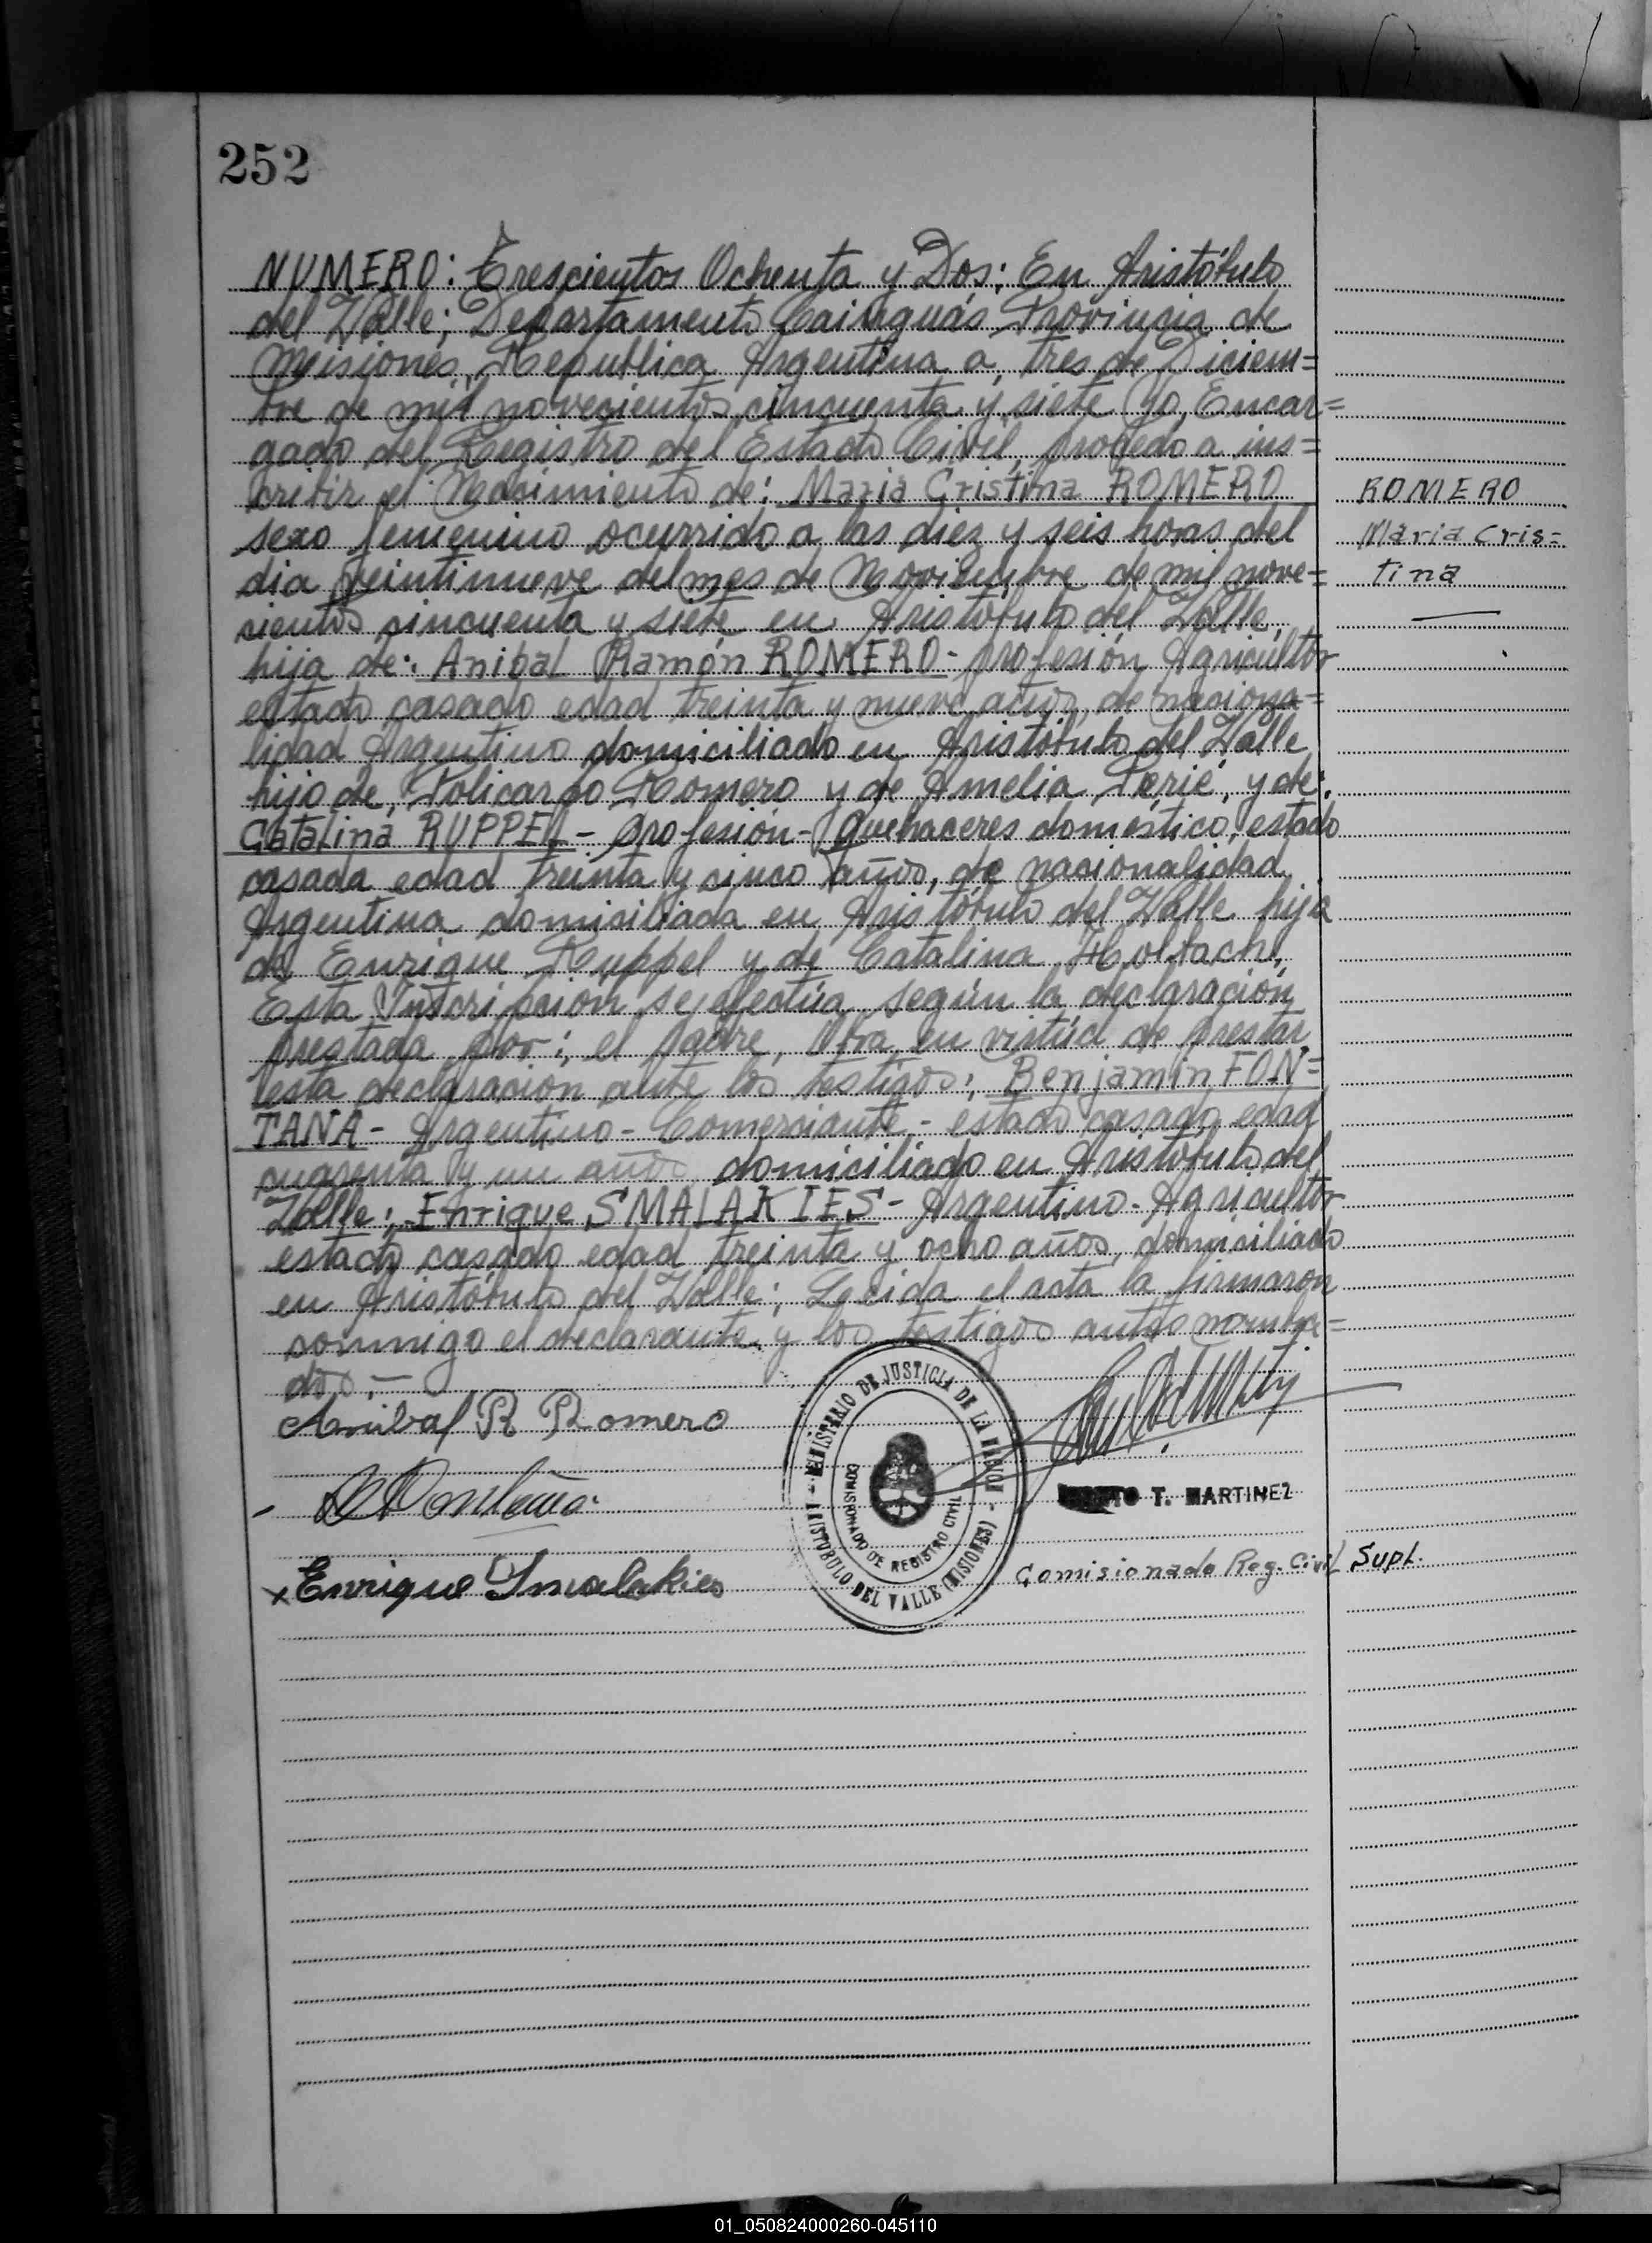 252
NUMERO: Trescientos Ochenta y Dos: En Aristóbulo
del Valle; Departamento Cainguás Provincia de
Misiones, República Argentina a tres de Diciem=
bre de mil novecientos cincuenta y siete Yo, Encar=
gado del Registro del Estado Civil, procedo a ins=
cribir el Nacimiento de: Maria Cristina ROMERO
ROMERO
sexo femenino ocurrido a las diez y seis horas del
Maria Cris=
dia veintinueve del mes de Noviembre de mil nove=
tina
cientos cincuenta y siete en Aristóbulo del Valle,
hija de: Anibal Ramón ROMERO- profesión Agricultor
estado casado edad treinta y nueve años, de naciona=
lidad Argentino domiciliado en Aristóbulo del Valle
hijo de, Policarpo Romero y de Amelia Perié, y de:
Catalina RUPPEL- profesión- Quehaceres doméstico, estado
casada edad treinta y cinco años, de nacionalidad
Argentina domiciliada en Aristóbulo del Valle hija
de Enrique Ruppel y de Catalina
Esta Inscripción se efectúa según la declaración
prestada por: el padre, en virtúd de prestar
esta declaración ante los testigos: Benjamin FON=
TANA- Argentino- Comerciante- estado casado edad
cuarenta y un años domiciliado en Aristóbulo del
Valle: Enrique SMALAKIES- Argentino- Agricultor
estado casado edad treinta y ocho años, domiciliado
en Aristóbulo del Valle; Leída el acta la firmaron
conmigo el declarante y los testigos antes nombra=
dos.-
Anibal R Romero
MINISTERIO DE JUSTICIA DE LA NACION - ARISTOBULO DEL VALLE (MISIONES)
COMISIONADO DE REGISTRO CIVIL
T. MARTINEZ
Comisionado Reg. Civil Supl.
x Enrique Smalakies
01_050824000260-045110